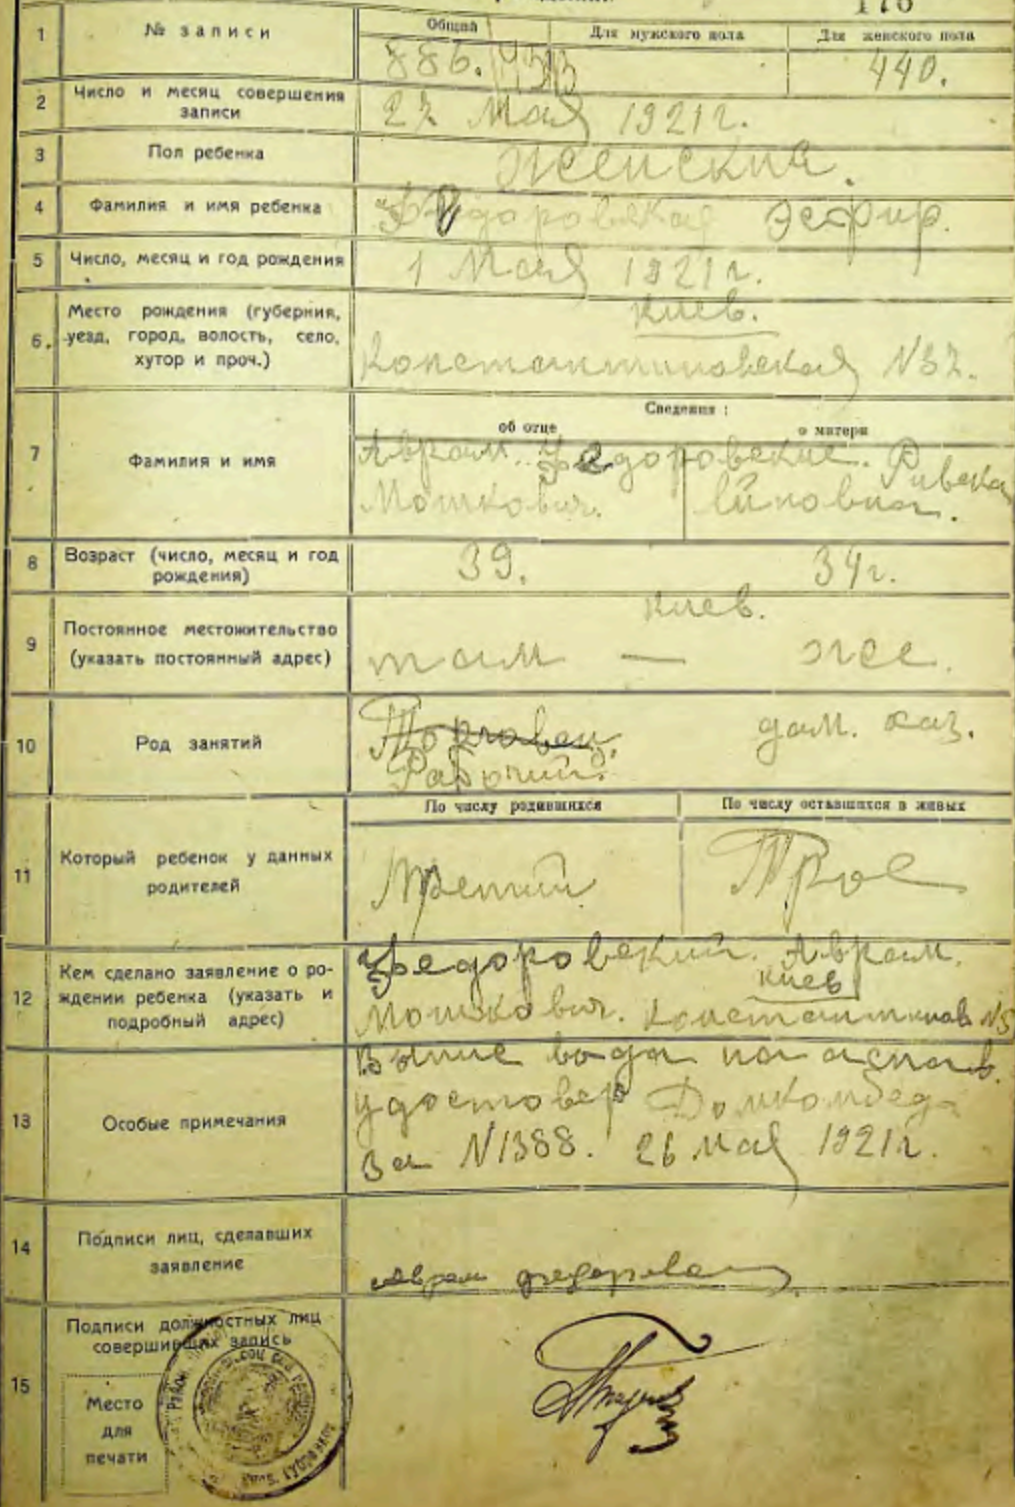 176
1
№ записи
Общий
Для мужского пола
Для женского пола
886.
440.
2
Число и месяц совершения
записи
27 Мая 1921 г.
3
Пол ребенка
Женский.
4
Фамилия и имя ребенка
Эсфир.
5
Число, месяц и год рождения
1 Мая 1921 г.
6.
Место рождения (губерния,
уезд, город, волость, село,
хутор и проч.)
Киев.
Константиновская №
7
Фамилия и имя
Сведения:
об отце
о матери
Аврам Федоровские. Ривека
Мошкович.
8
Возраст (число, месяц и год
рождения)
39.
34 г.
9
Постоянное местожительство
(указать постоянный адрес)
Киев.
там — же.
10
Род занятий
Торговец.
Рабочий.
дом. хоз.
11
Который ребенок у данных
родителей
По числу родившихся
По числу оставшихся в живых
Третий
Трое
12
Кем сделано заявление о ро-
ждении ребенка (указать и
подробный адрес)
Федоровский. Аврам.
Киев
Мошкович. Константинов №
13
Особые примечания
на основ.
удостовер Домкомбеда
За №1388. 26 Мая 1921 г.
14
Подписи лиц, сделавших
заявление
Аврам
15
Подписи должностных лиц
совершивших запись
Место
для
печати